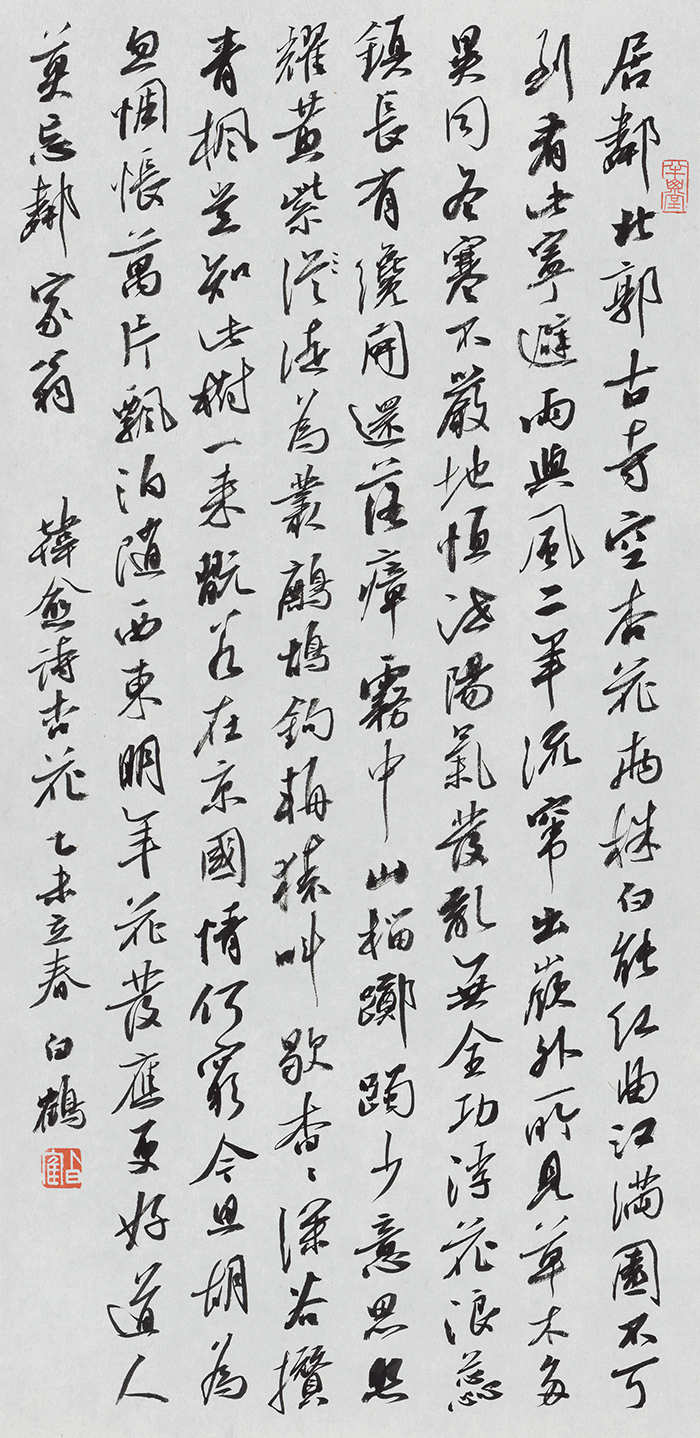 居鄰北郭古寺空杏花兩株白能紅曲江滿園不可
到看此寧避雨與風二年流竄出嶺外所見草木多
異同冬寒不嚴地恆泄陽氣發亂無全功浮花浪蕊
鎮長有纔開還落瘴霧中山榴躑躅少意思照
耀黃紫徒為叢鷓鴣鉤輈猿叫歇杳〻深谷攢
青楓豈知此樹一來翫若在京國情何窮今旦胡為
忽惆悵萬片飄泊隨西東明年花發應更好道人
莫忘鄰家翁 韓愈詩杏花 乙未立春 白鶴